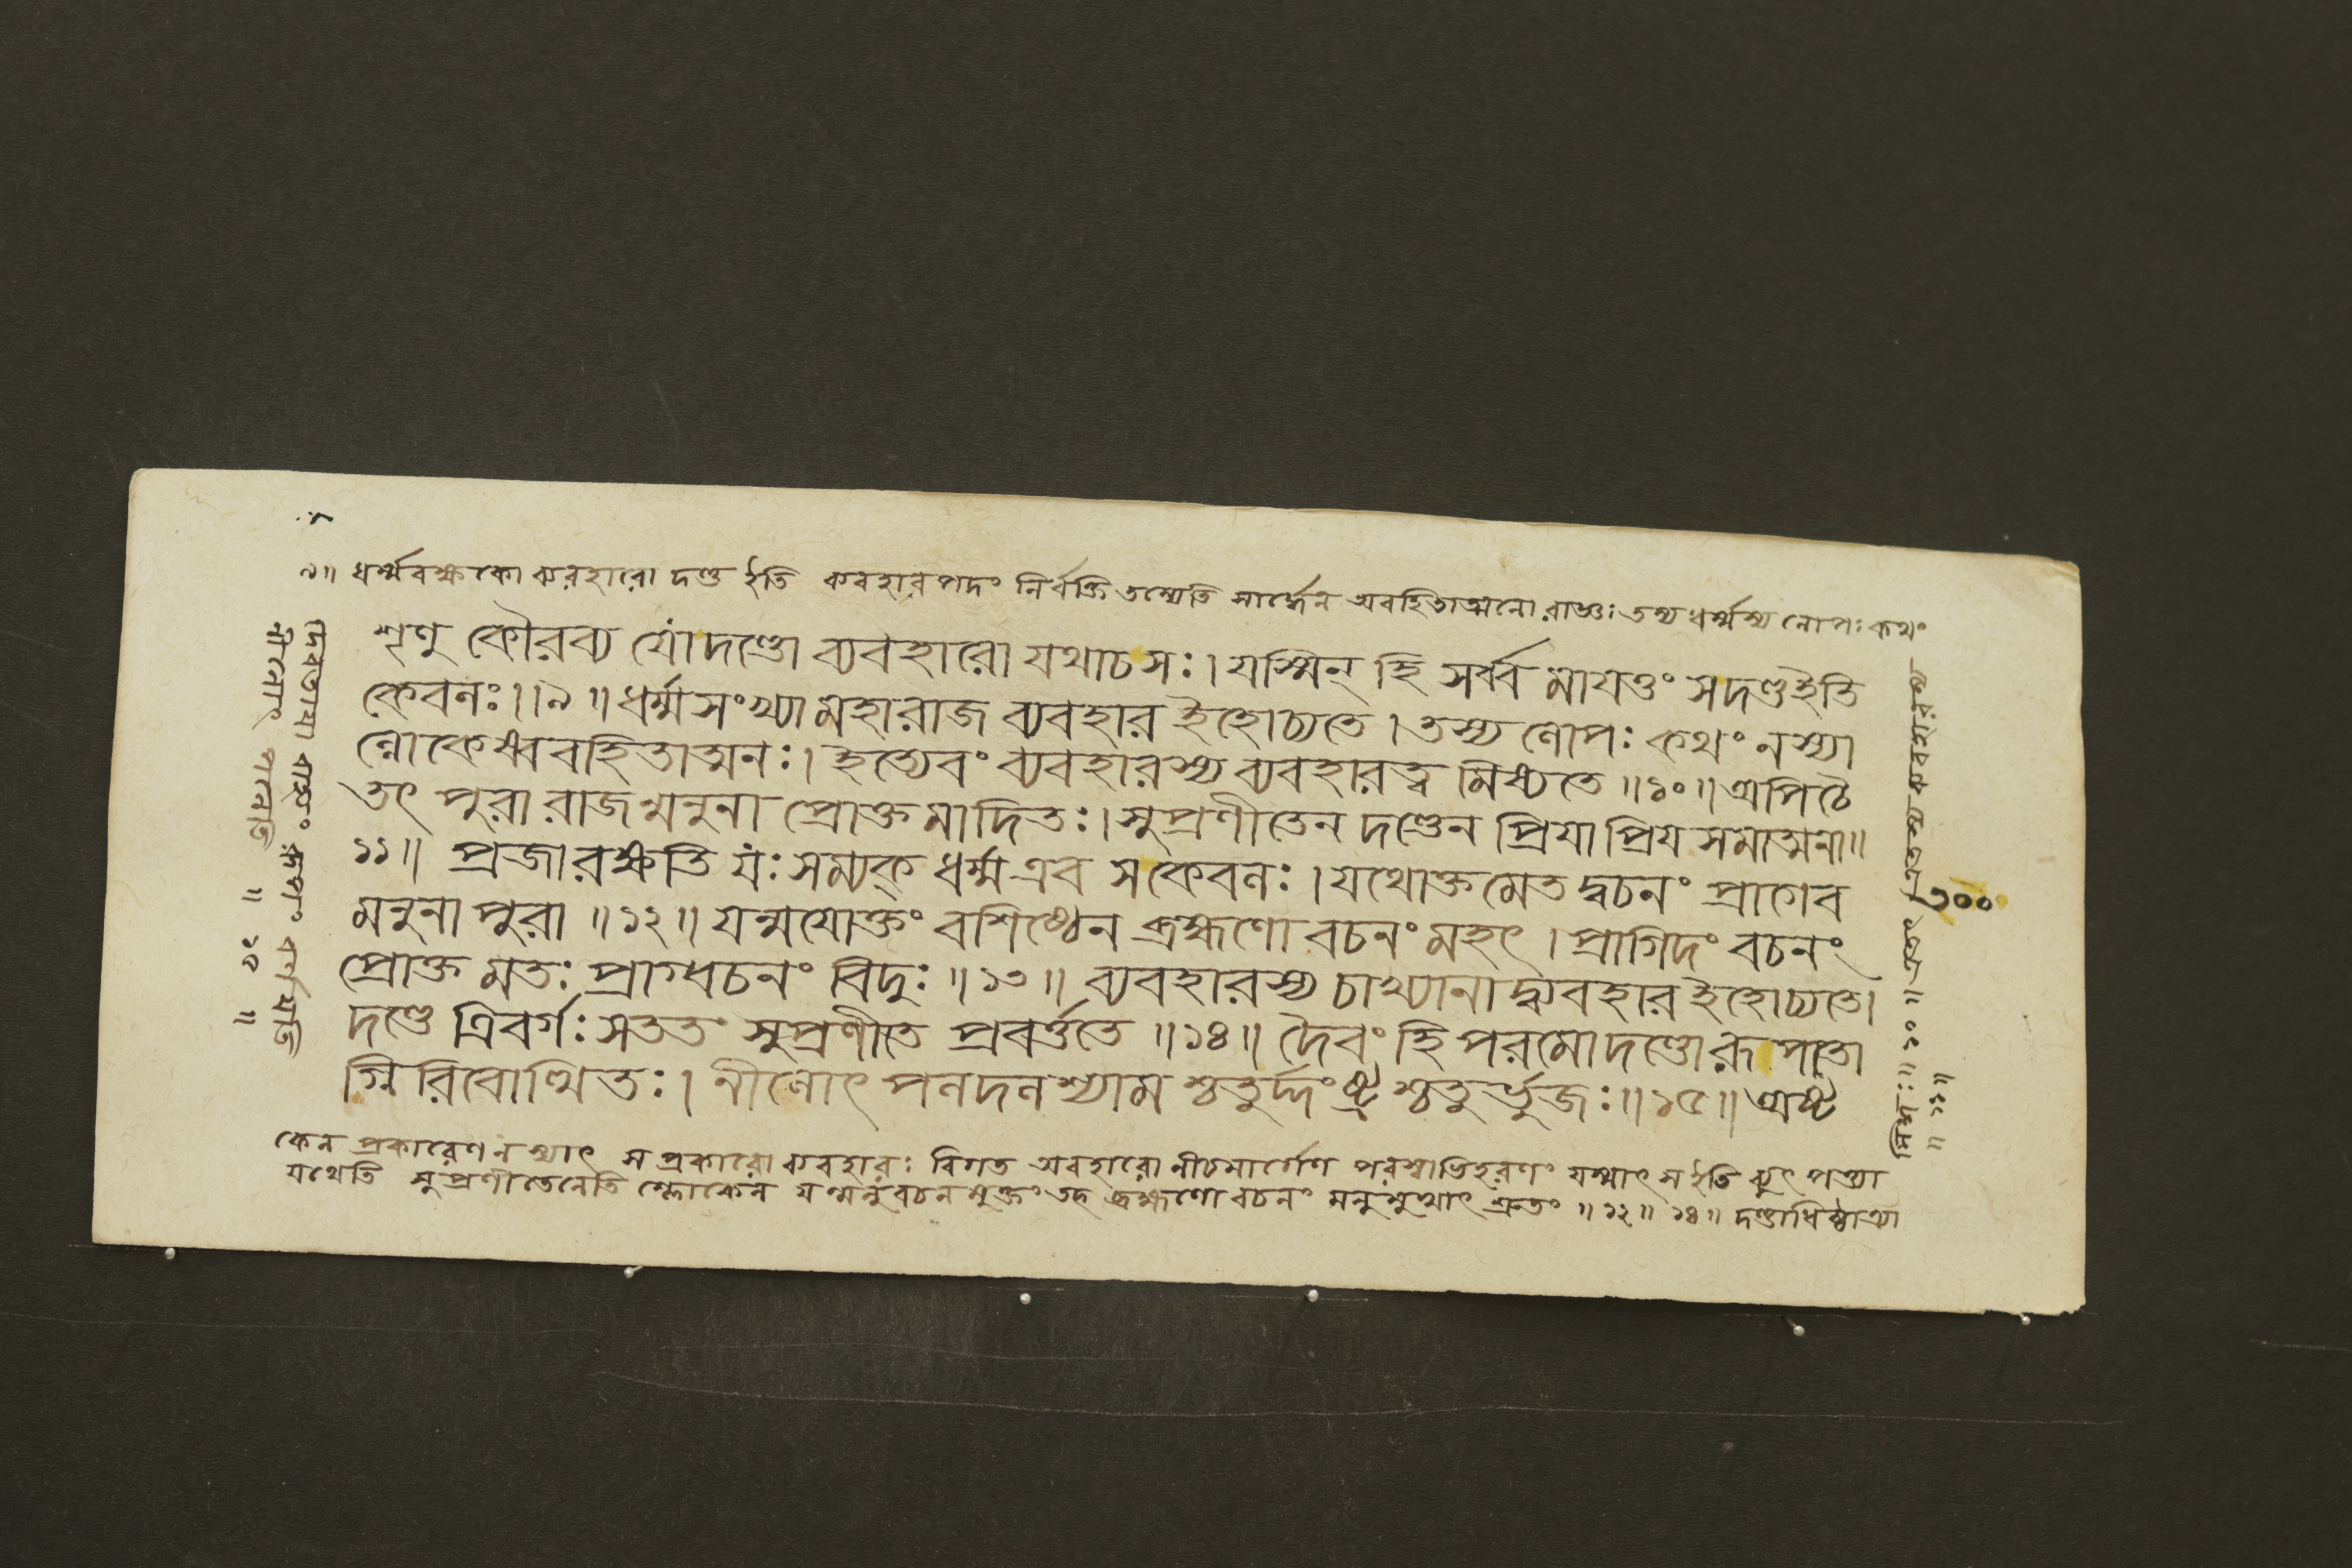 ৯॥ ধর্ম্মরক্ষকো ব্যবহারো দণ্ড ইতি ব্যবহারপদং নির্ব্বক্তি তস্যেতি সার্দ্ধেন অবহিতাত্মনো রাজ্ঞঃ তস্য ধর্ম্মস্য লোপঃ কথং
শৃণু কৌরব্য যোদণ্ডো ব্যবহারো যথাচসঃ। যস্মিন্ হি সর্ব্ব মাযত্তং সদণ্ডইতি
কেবলঃ।।৯॥ ধর্ম্মসংখ্যা মহারাজ ব্যবহার ইহোচ্যতে। তস্য লোপঃ কথং নস্যা
ল্লোকেষ্ববহিতাত্মনঃ। ইত্যেবং ব্যবহারস্য ব্যবহারত্ব মিষ্যতে॥১০॥ অপিচৈ
তৎ পুরা রাজন্মনুনা প্রোক্তমাদিতঃ। সুপ্রণীতেন দণ্ডেন প্রিযাপ্রিয সমাত্মনা॥
১১॥ প্রজারক্ষতি যঃ সম্যক্ ধর্ম্ম এব সকেবলঃ। যথোক্তমেতদ্বচনং প্রাগেব
মনুনা পুরা॥১২॥ যন্মযোক্তং বশিষ্ঠেন ব্রহ্মণো বচনং মহৎ। প্রাগিদং বচনং
প্রোক্ত মতঃ প্রাগ্বচনং বিদুঃ॥১৩॥ ব্যবহারস্য চাখ্যানাদ্ব্যবহার ইহোচ্যতে।
দণ্ডে ত্রিবর্গঃ সততং সুপ্রণীতে প্রবর্ত্ততে॥১৪॥ দৈবং হি পরমোদণ্ডোরূপতো
গ্নিরিবোত্থিতঃ। নীলোৎপলদলশ্যামশ্চতুর্দ্দংষ্ট্রশ্চতুর্ভুজঃ॥১৫॥ অষ্ট
কেন প্রকারেণ নস্যাৎ স প্রকারো ব্যবহারঃ বিগত অবহারো নীচমার্গেণ পরস্বাভিহরণং যস্মাৎ স ইতি ব্যুৎপত্ত্যা
যথেতি সুপ্রণীতেনেতি শ্লোকেন যন্মনুবচনমুক্তং তদ্ব্রহ্মণো বচনং মনুমুখাৎ শ্রুতং॥১২॥১৪॥ দণ্ডাধিষ্ঠাত্র্যা
দেবতাযা বাহ্যং রূপং বর্ণযতি
নীলোৎ পলেতি ॥ ১৫ ॥
৩০০
সিদ্ধঃ॥ ১০॥ এতৎ
॥ ১১॥